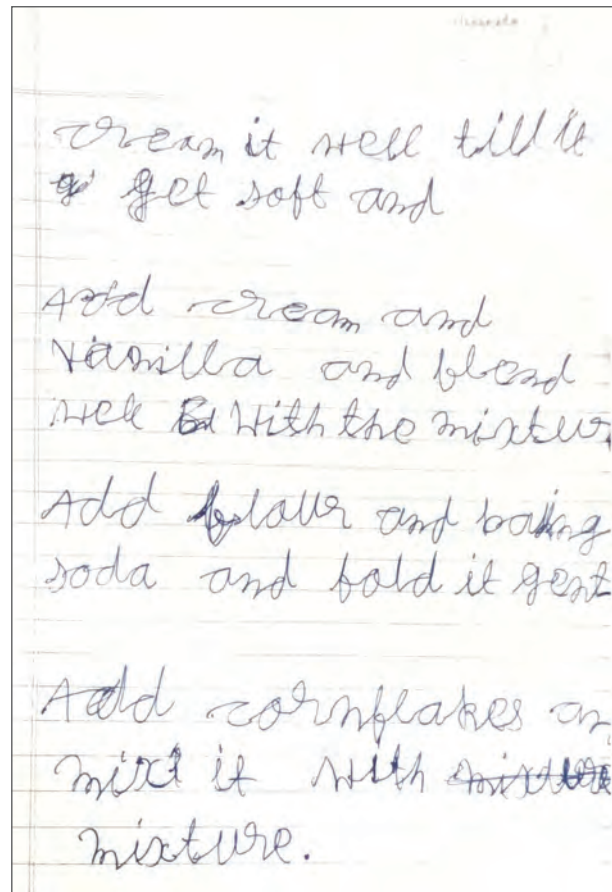 cream it well till it
get soft and
Add cream and
vanilla and blend
well with the mixtur
Add flour and baking
soda and fold it gent
Add cornflakes an
mixt it with mixture
mixture.